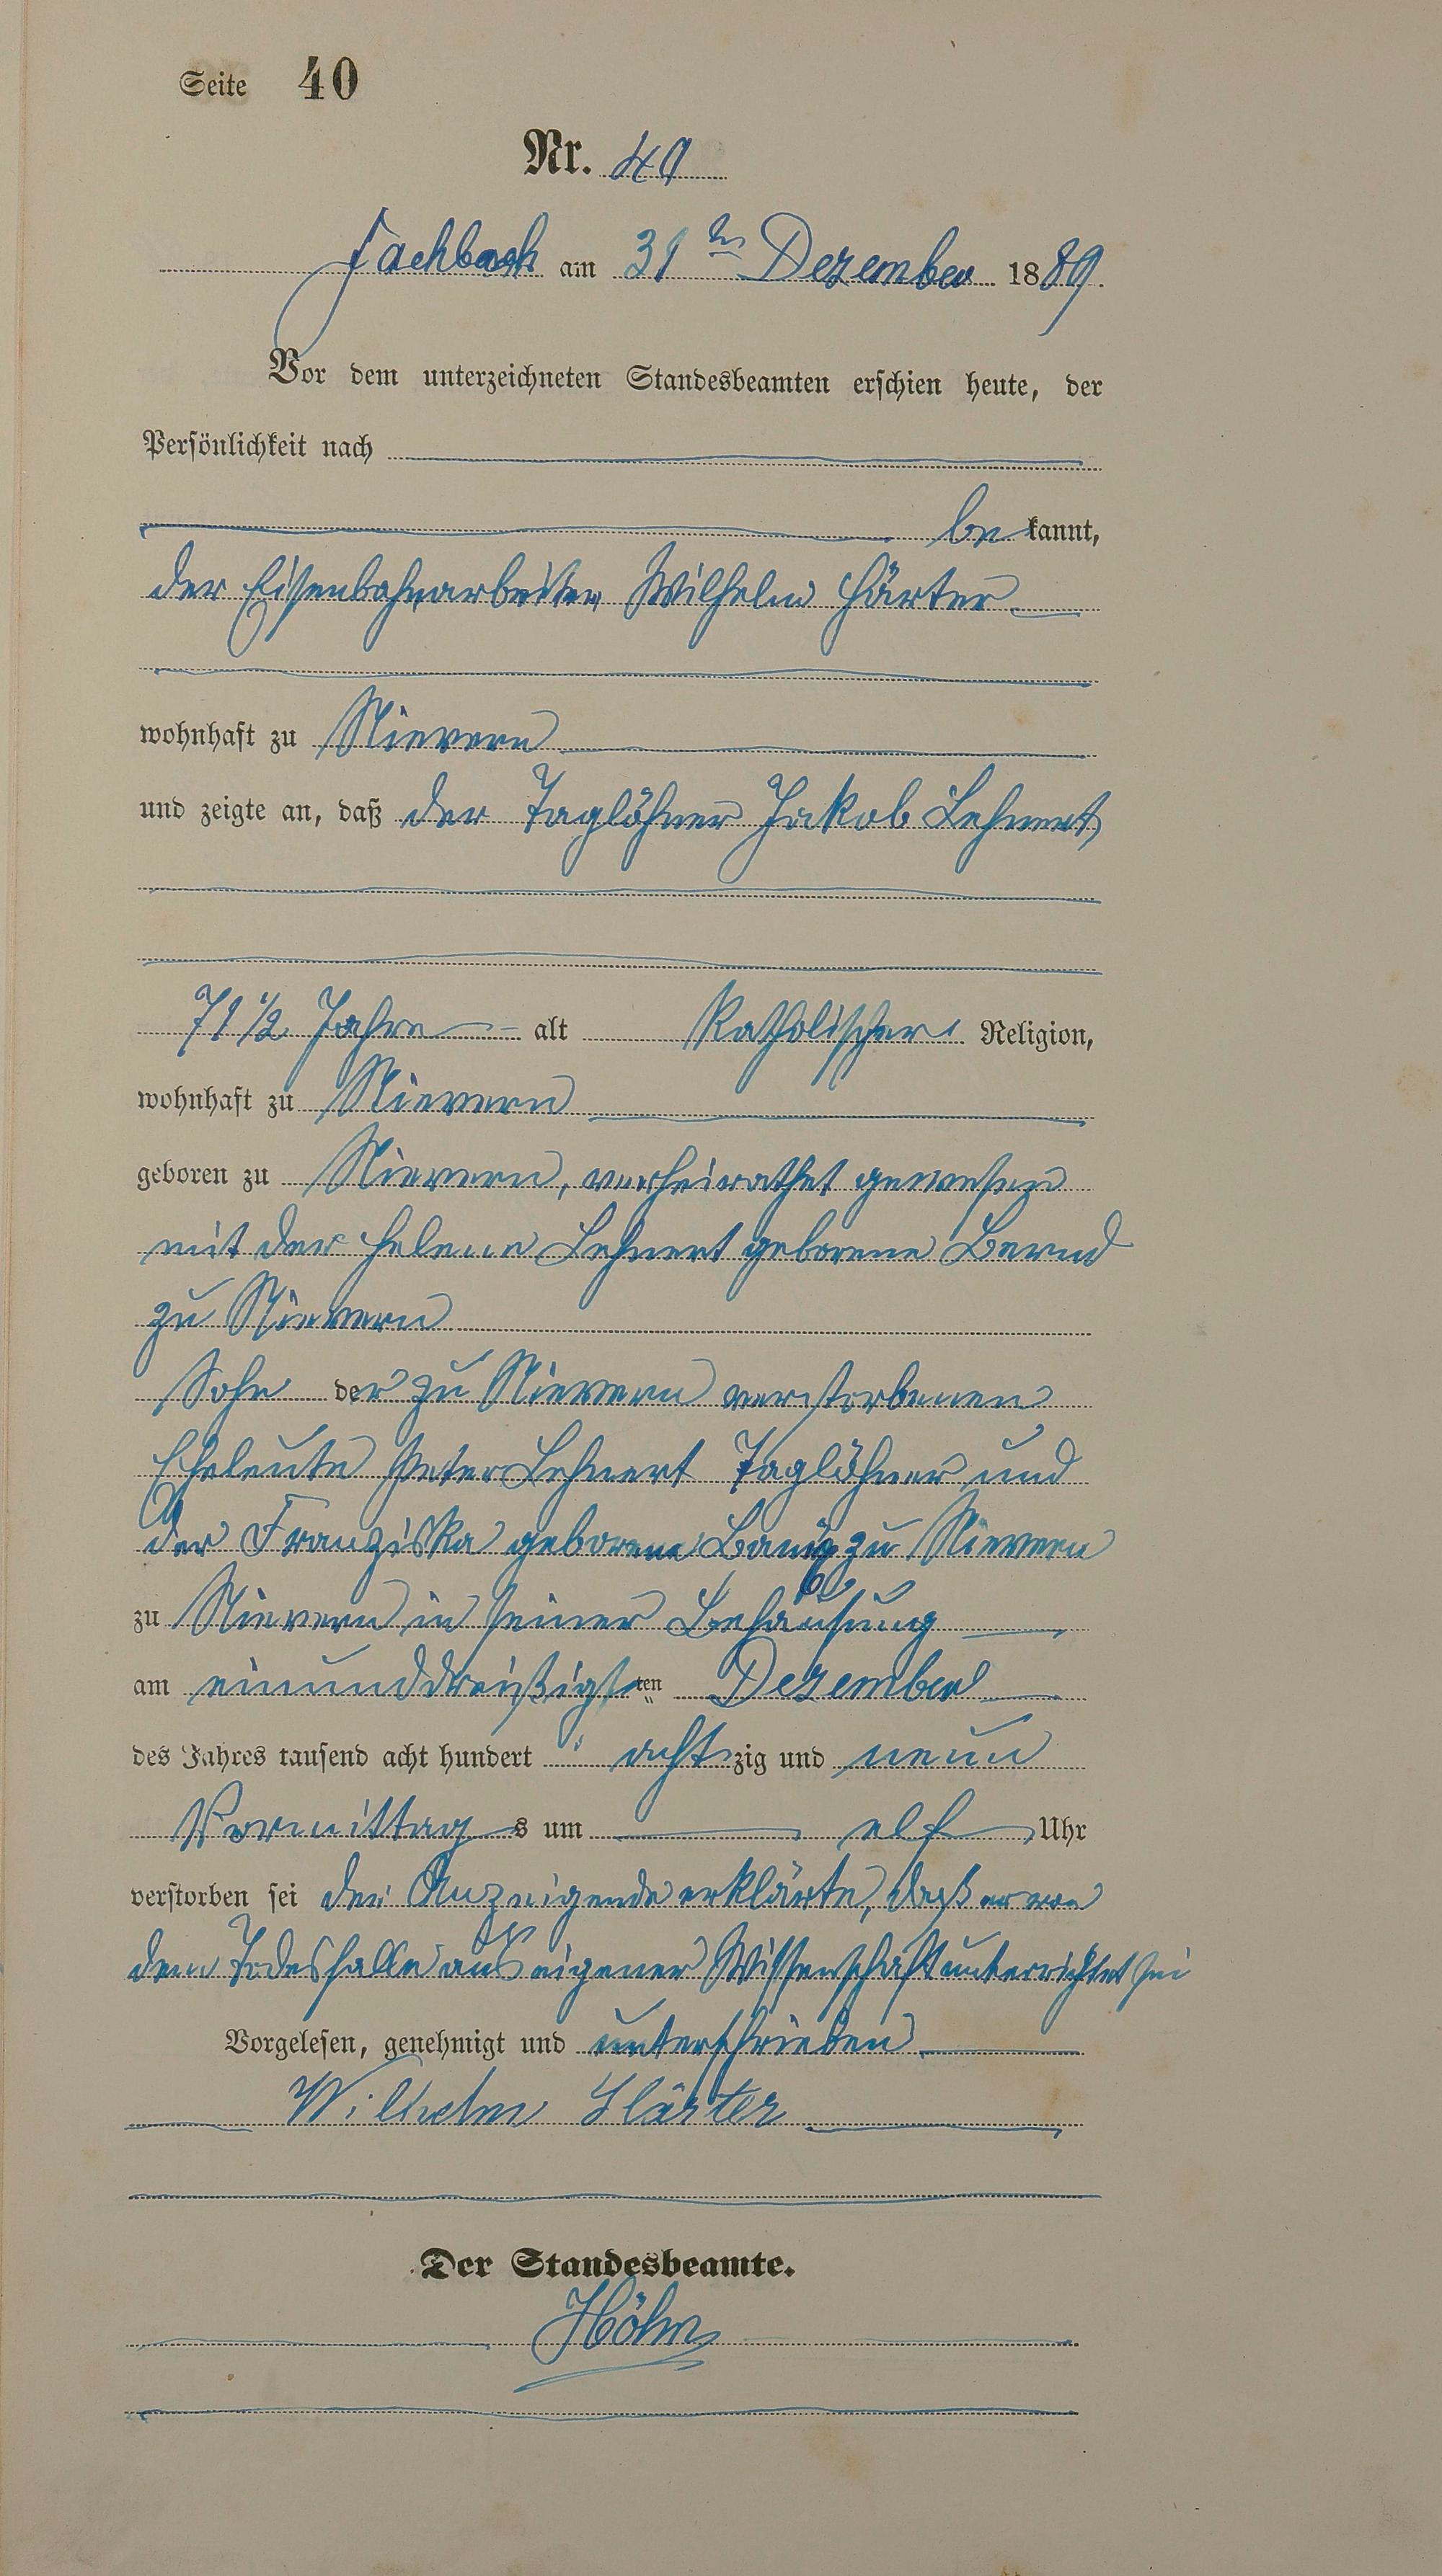 Seite 40
Nr. 40
Fachbach am 31ten Dezember 1889.
Vor dem unterzeichneten Standesbeamten erschien heute, der
Persönlichkeit nach
bekannt,
der Eisenbahnarbeiter Wilhelm Härter
wohnhaft zu Nievern
und zeigte an, daß der Taglöhner Jakob Lehnert
71 1/2 Jahre alt katholischer Religion,
wohnhaft zu Nievern
geboren zu Nievern, verheirathet gewesen
mit der Helene Lehnert geborene Bernd
zu Nievern
Sohn der zu Nievern verstorbenen
Eheleute Peter Lehnert Taglöhner und
der Franziska geborene zu Nievern
zu Nievern in seiner Behausung
am einunddreißigsten Dezember
des Jahres tausend acht hundert achtzig und neun
Vormittags um elf Uhr
verstorben sei der Anzeigende erklärte, daß er von
dem Todesfalle aus eigener Wissenschaft unterrichtet sei
Vorgelesen, genehmigt und unterschrieben
Wilhelm Härter
Der Standesbeamte.
Höhn